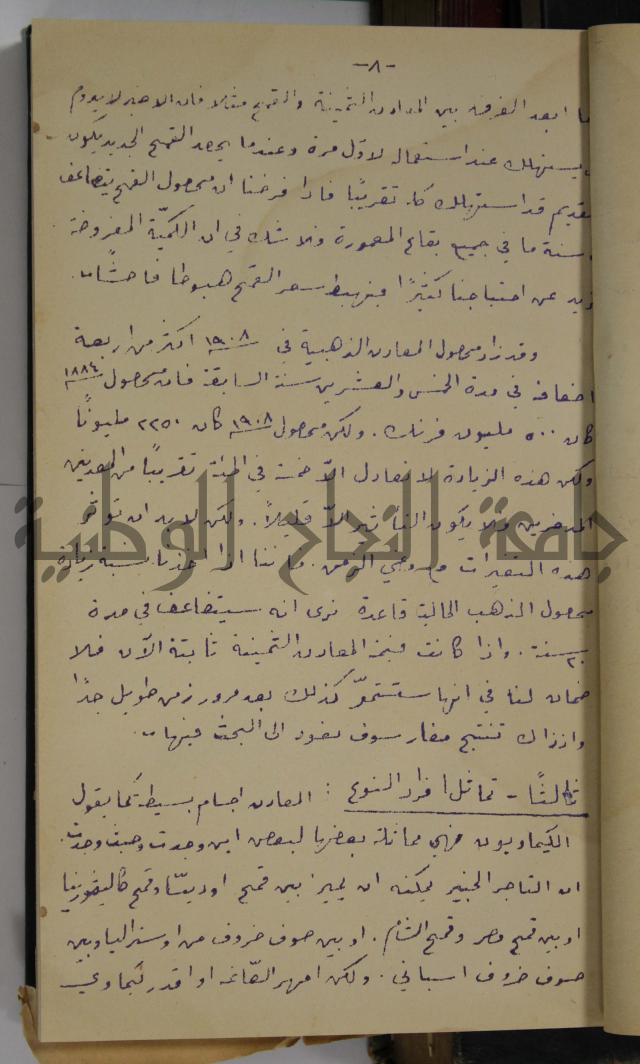 -٨-
ما ابعد الفرق بين المعادن الثمينة والقمح مثلا فان الاخير لا يدوم
يستهلك عند استعماله لاول مرة وعندما يحصد القمح الجديد يكون
القديم قد استهلك كله تقريبًا فاذا فرضنا ان محصول القمح يتضاعف
سنة ما في جميع بقاع المعمورة فلا شك في ان الكميّة المفروضة
تزيد عن احتياجنا كثيرًا فيهبط سعر القمح هبوطا فاحشًا.
وقد زاد محصول المعادن الذهبية في ١٩٠٨ اكثر من اربعة
اضعافه في مدة الخمس والعشرين سنة السابقة فان محصول ١٨٨٤
كان ٥٠٠ مليون فرنك. ولكن محصول ١٩٠٨ كان ٢٢٥٠ مليونًا
ولكن هذه الزيادة لا تعادل الاّ خمسة في المئة تقريبًا من المعدنين
المدخرين فلا يكون التأثير الاّ قليلاً. ولكن لا بد ان تؤثر
هذه التغيرات مع مضي الزمن. فاننا اذا اخذنا نسبة زيادة
محصول الذهب الحالية قاعدة نرى انه سيتضاعف في مدة
٢٠ سنة. واذا كانت قيمة المعادن الثمينة ثابتة الآن فلا
ضمان لنا في انها ستستمرّ كذلك بعد مرور زمن طويل جدًا
واذ ذاك تنتج مضار سوف نعود الى البحث فيها.
ثالثًا - تماثل افراد النوع : المعادن اجسام بسيطة كما يقول
الكيماويون فهي مماثلة بعضها لبعض اين وجدت وحيث وجدت.
ان التاجر الخبير يمكنه ان يميز بين قمح اوديسّا وقمح كاليفورنيا
او بين قمح مصر وقمح الشام. او بين صوف خروف من اوستراليا وبين
صوف خروف اسباني. ولكن امهر الصّاغة او اقدر كيماوي
جامعة النجاح الوطنية